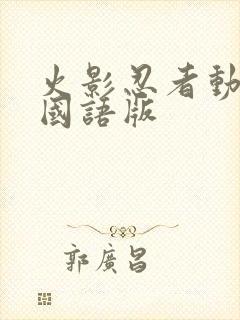 火影忍者動
國語版
郭廣昌